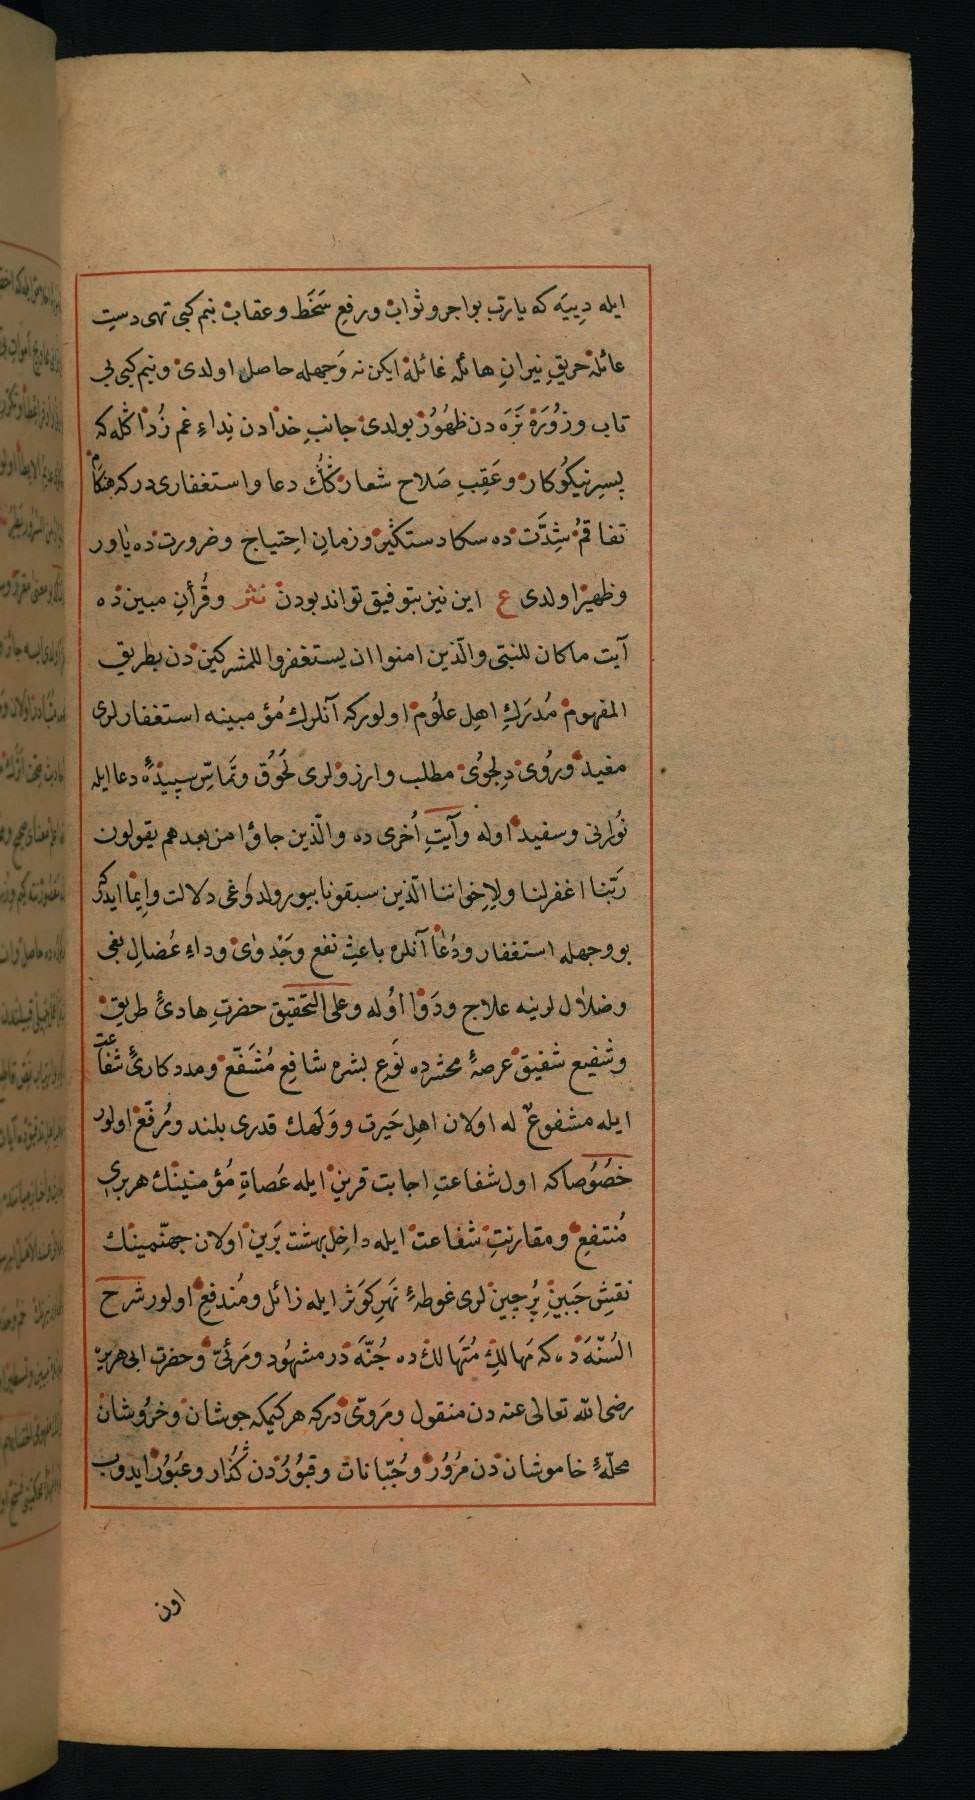 ایله دِییَه که یا ربّ بو اجر و ثواب و رفعِ سَخَط و عقاب بنم کبی تهی دستِ
عائلهٔ حریقِ نیرانِ هائله غائله ایکن نه وَجهله حاصل اولدی و بنم کبی بی
تاب و زُوَرَهٔ نَزَه دن ظهُور بولدی جانبِ خدادن نِداءِ غم زُدا کله که
پسرِ نیکُوکار و عَقِبِ صَلاح شعارڭُك دعا و استغفاری درکه هنکامِ
تفاقمُ شِدَّت ده سکا دستگیر و زمانِ احتیاج و ضرورت ده یاور
و ظهیر اولدی ع این نیز بتوفیق تواند بودن نثر و قُرأنِ مبین ده
آیت ما کان للنبّی و الّذین امنوا ان یستغفروا للمشرکین دن بطریق
المفهوم مُدرَكِ اهلِ علُوم اولورکه آنلرك مُؤمبینه استغفارلری
مفید و رُوی دِلجوُی مطلب و ارزولری لحُوُق و تَماسّ سپیدهٔ دعا ایله
نُورانی و سفید اوله و آیتِ اُخری ده و الّذین جاؤا من بعدهم یقولون
رَبّنا اغفر لنا و لِاِخواننا الّذین سبقونا بیورولدوغی دلالت و ایما ایدرکه
بو وجهله استغفار و دُعا آنلره باعثِ نفع و جَدوای و داءِ عُضالِ بغی
و ضلال لرینه علاج و دَوا اوُله و علی التّحقیق حضرتِ هادئ طریق
و شفیع شفیق عرصۀ محشرده نَوعِ بشره شافعِ مُشَفّع و مددکارئ شفاعت
ایله مشفوعٌ له اولان اهلِ حَیرت و وَلَهك قدری بلند و مُرفّع اولور
خصُوُصا که اول شفاعتِ اجابت قرین ایله عُصاةِ مُؤمنینك هر بری
مُنتفع و مقارنتِ شفاعت ایله داخلِ بهشت بَرین اولان جهنّمینك
نقشِ جَبینِ پُرچین لری غوطۀ نَهرِ کوَثر ایله زائل و مُندفع اولور شرح
السُنّه ده که مَهالكِ مُتَهالك ده جُنّه در مشهُود و مَرئیّ و حضرتِ ابی هریره
رضی الله تعالی عنه دن منقول و مَرویّ درکه هر کیمکه جوشان و خرُوشان
محلّۀ خاموشان دن مرُوُر و جُبّانات و قبوُردن کُذار و عبُوُر ایدوب
اون